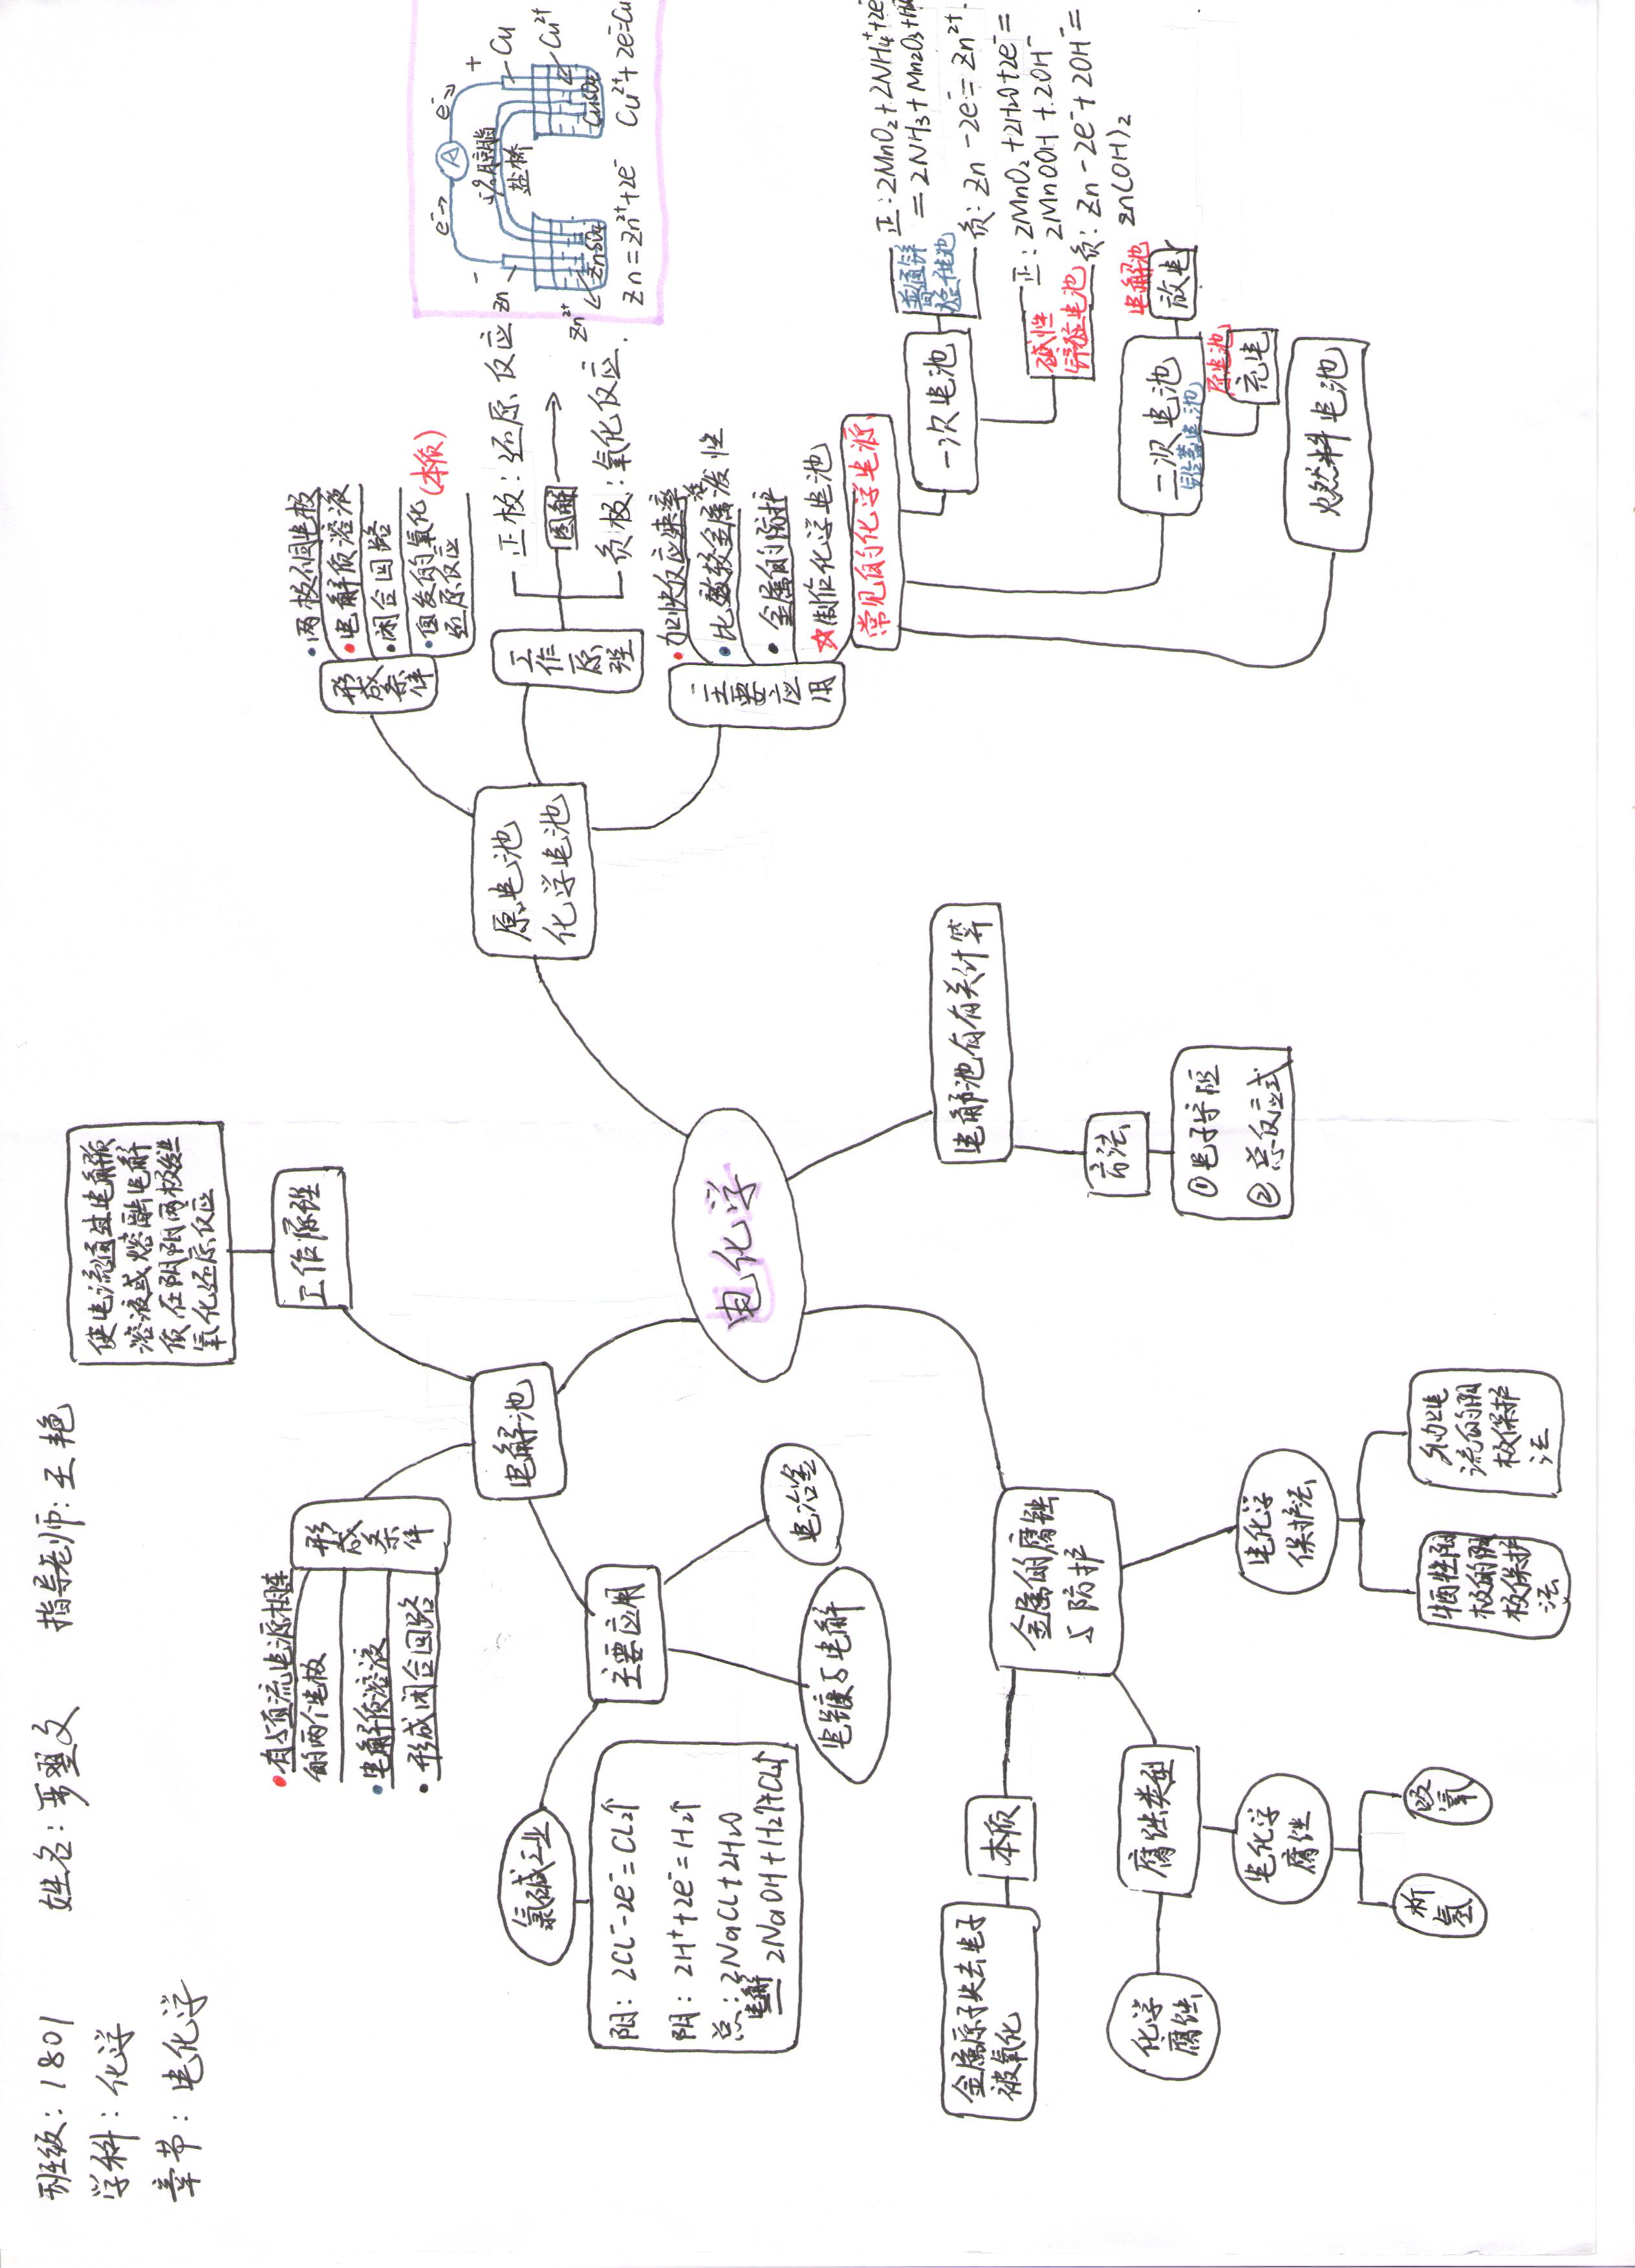 班级：1801
姓名：
指导老师：王艳
学科：化学
章节：电化学
电化学
电解池
工作原理
使电流通过电解质
溶液或熔融电解
质在阴阳两极发生
氧化还原反应
形成
条件
•有与直流电源相连
的两个电极
•电解质溶液
•形成闭合回路
主要应用
电冶金
电镀与电解
氯碱工业
阳：2Cl⁻-2e⁻=Cl₂↑
阴：2H⁺+2e⁻=H₂↑
总：2NaCl+2H₂O
电解
2NaOH+H₂↑+Cl₂↑
原电池
化学电池
形成
条件
•两极不同电极
•电解质溶液
•闭合回路
•自发的氧化
还原反应
(本质)
工作
原理
正极：还原反应
图解
负极：氧化反应
e⁻→
A
e⁻→
-
+
Zn
Cu
琼脂
盐桥
Zn²⁺
Cu²⁺
ZnSO₄
CuSO₄
Zn=Zn²⁺+2e⁻
Cu²⁺+2e⁻=Cu
主要
应用
•加快反应速率
•比较金属活泼性
•金属的防护
☆制作化学电池
常见的化学电源
一次电池
普通锌
锰电池
正：2MnO₂+2NH₄⁺+2e⁻
=2NH₃+Mn₂O₃+H₂O
负：Zn-2e⁻=Zn²⁺
碱性
锌锰电池
正：2MnO₂+2H₂O+2e⁻=
2MnOOH+2OH⁻
负：Zn-2e⁻+2OH⁻=
Zn(OH)₂
二次电池
铅蓄电池
电解池
放电
原电池
充电
燃料电池
电解池有关计算
方法
①电子守恒
②总反应式
金属的腐蚀
与防护
本质
金属原子失去电子
被氧化
腐蚀类型
化学
腐蚀
电化学
腐蚀
析
氢
吸
氧
电化学
保护法
牺牲阳
极的阴
极保护
法
外加电
流的阴
极保护
法